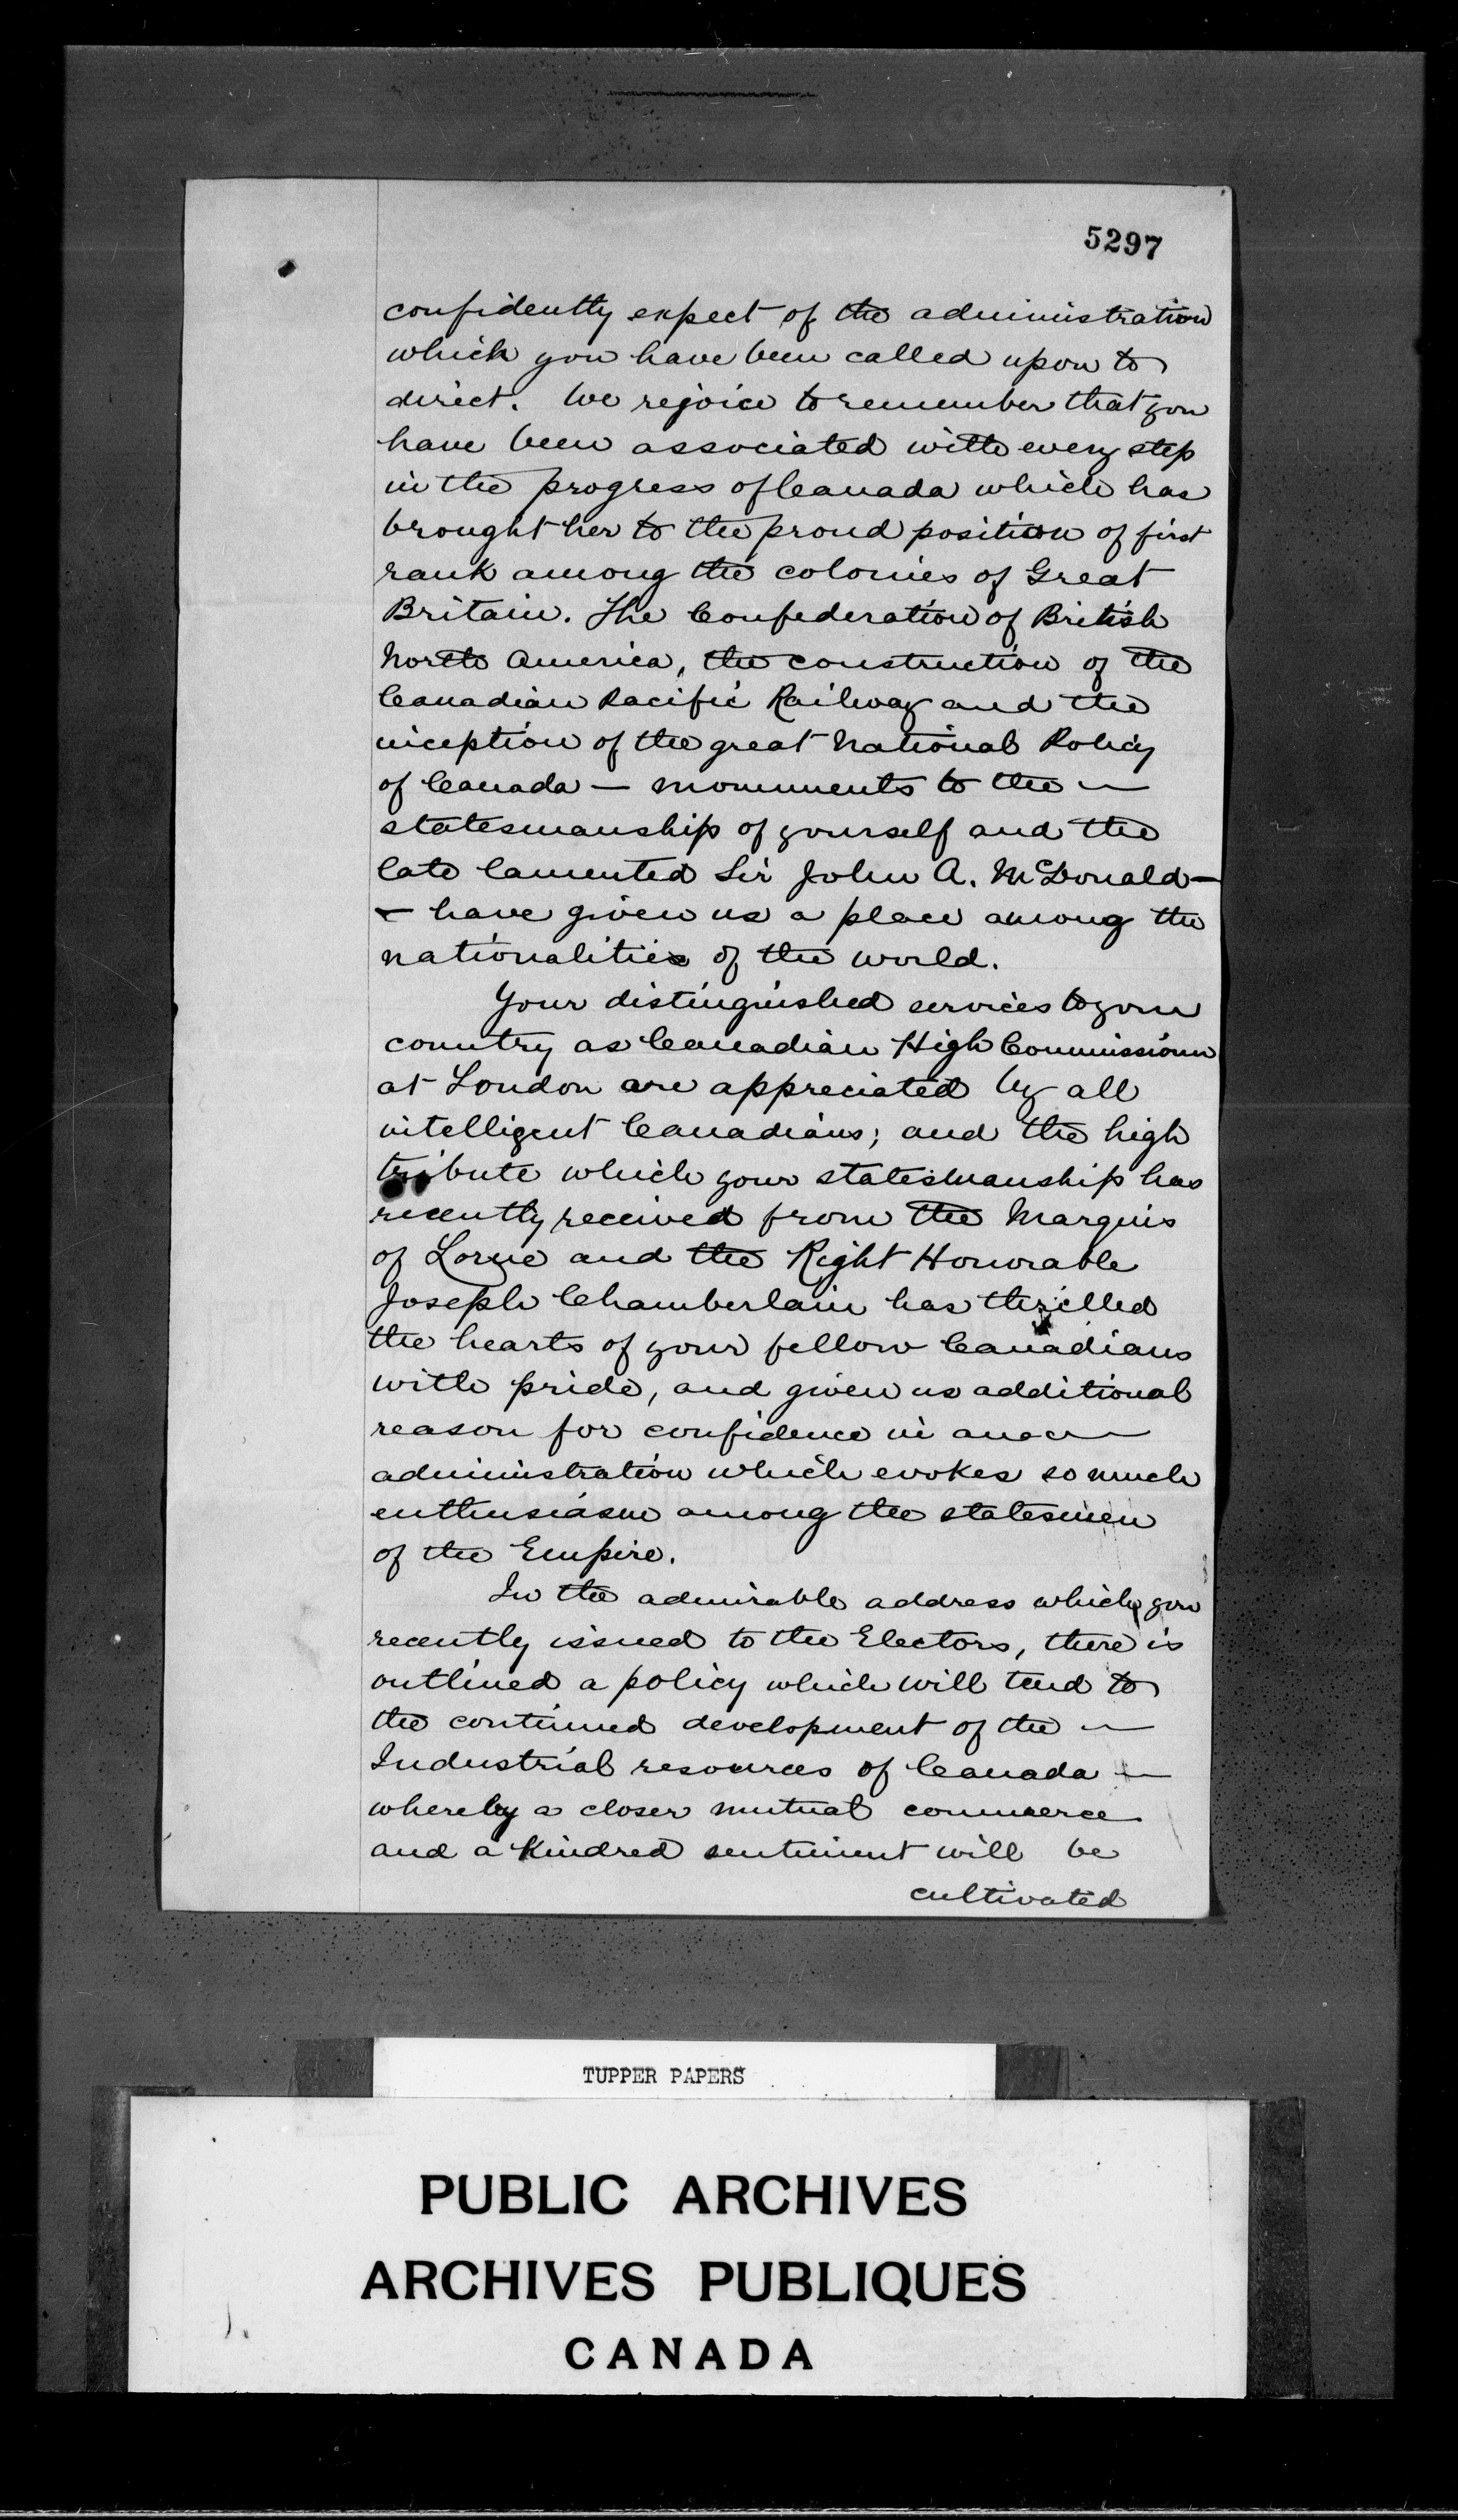 5297
confidently expect of the administration
which you have been called upon to
direct. We rejoice to remember that you
have been associated with every step
in the progress of Canada which has
brought her to the proud position of first
rank among the colonies of Great
Britain. The Confederation of British
North America, the construction of the
Canadian Pacific Railway and the
inception of the great National Policy
of Canada — monuments to the —
statesmanship of yourself and the
late lamented Sir John A. McDonald —
— have given us a place among the
nationalities of the world.
Your distinguished services to your
country as Canadian High Commissioner
at London are appreciated by all
intelligent Canadians; and the high
tribute which your statesmanship has
recently received from the Marquis
of Lorne and the Right Honorable
Joseph Chamberlain has thrilled
the hearts of your fellow Canadians
with pride, and given us additional
reason for confidence in an
administration which evokes so much
enthusiasm among the statesmen
of the Empire.
In the admirable address which you
recently issued to the Electors, there is
outlined a policy which will tend to
the continued development of the —
Industrial resources of Canada —
whereby a closer mutual commerce
and a kindred sentiment will be
cultivated
TUPPER PAPERS
PUBLIC ARCHIVES
ARCHIVES PUBLIQUES
CANADA